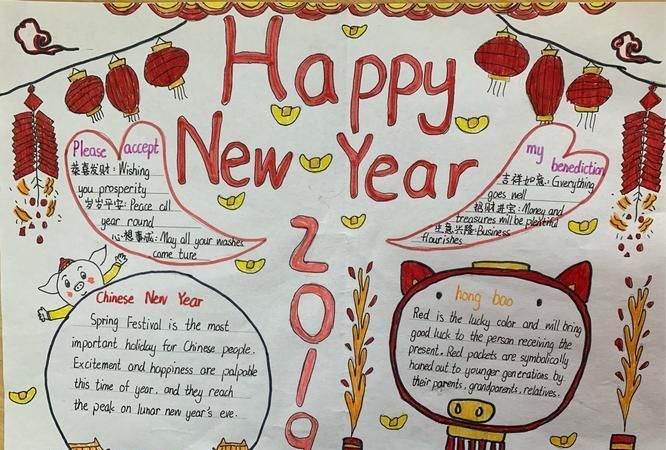 Happy
New Year
2019
Please accept
恭喜发财: Wishing
you prosperity
岁岁平安: Peace all
year round
心想事成: May all your washes
come ture
my benediction
吉祥如意: Gverything
goes well
招财进宝: Money and
treasures will be plentiful
生意兴隆: Business
flourishes
Chinese New Year
Spring Festival is the most
important holiday for Chinese people.
Excitement and happiness are palpable
this time of year, and they reach
the peak on lunar new year's eve.
hong bao
Red is the lucky color and will bring
good luck to the person receiving the
present. Red packets are symbolically
haned out to younger generations by
their parents, grandparents, relatives.